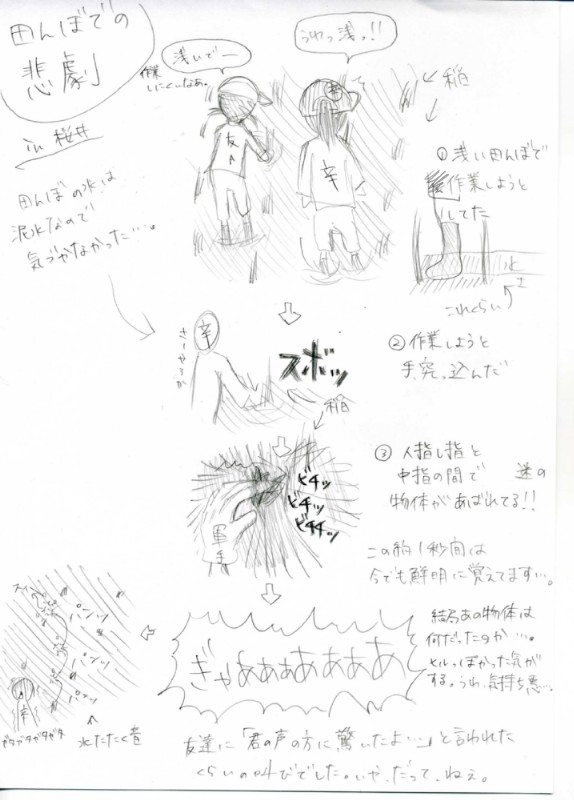 田んぼでの
悲劇
in 桜井
浅いでー
作業
しにくいなぁ。
うわっ浅っ!!
稲
友A
辛
田んぼの水は
泥水なので
気づかなかった…。
①浅い田んぼで
作業しようと
してた
水
土
これくらい
辛
スボッ
②作業しようと
手突っ込んだ
稲
③人指し指と
中指の間で 謎の
物体があばれてる!!
ビチッ
ビチッ
ビチチッ
軍手
この約1秒間は
今でも鮮明に覚えてます…。
ぎゃあぁぁぁあぁぁぁあ
結局あの物体は
何だったのか…。
ヒルっぽかった気が
する。うわ、気持ち悪…。
パンッ
パンッ
パンッ
辛
ガタガタガタガタ
水たたく音
友達に「君の声の方に驚いたよ…」と言われた
くらいの叫びでした。いや、だって、ねぇ。